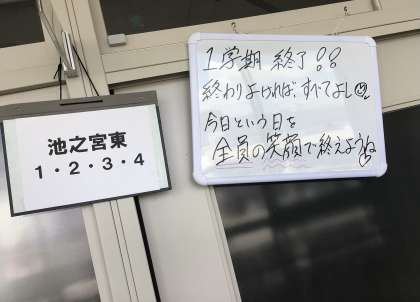 1学期 終了!!
終わりよければ、すべてよし
今日という日を
全員の笑顔で終えようね
池之宮東
1・2・3・4